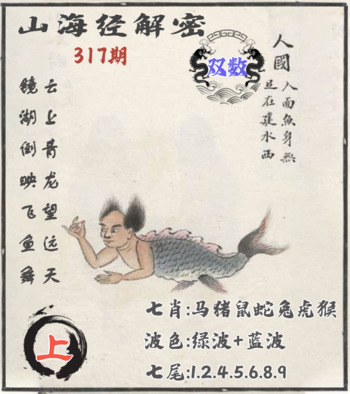 山海经解密
317期
双数
人國
人面魚身無
足在建水西
云上青龙望远天
镜湖倒映飞鱼舞
上
七肖:马猪鼠蛇兔虎猴
波色:绿波+蓝波
七尾:1.2.4.5.6.8.9